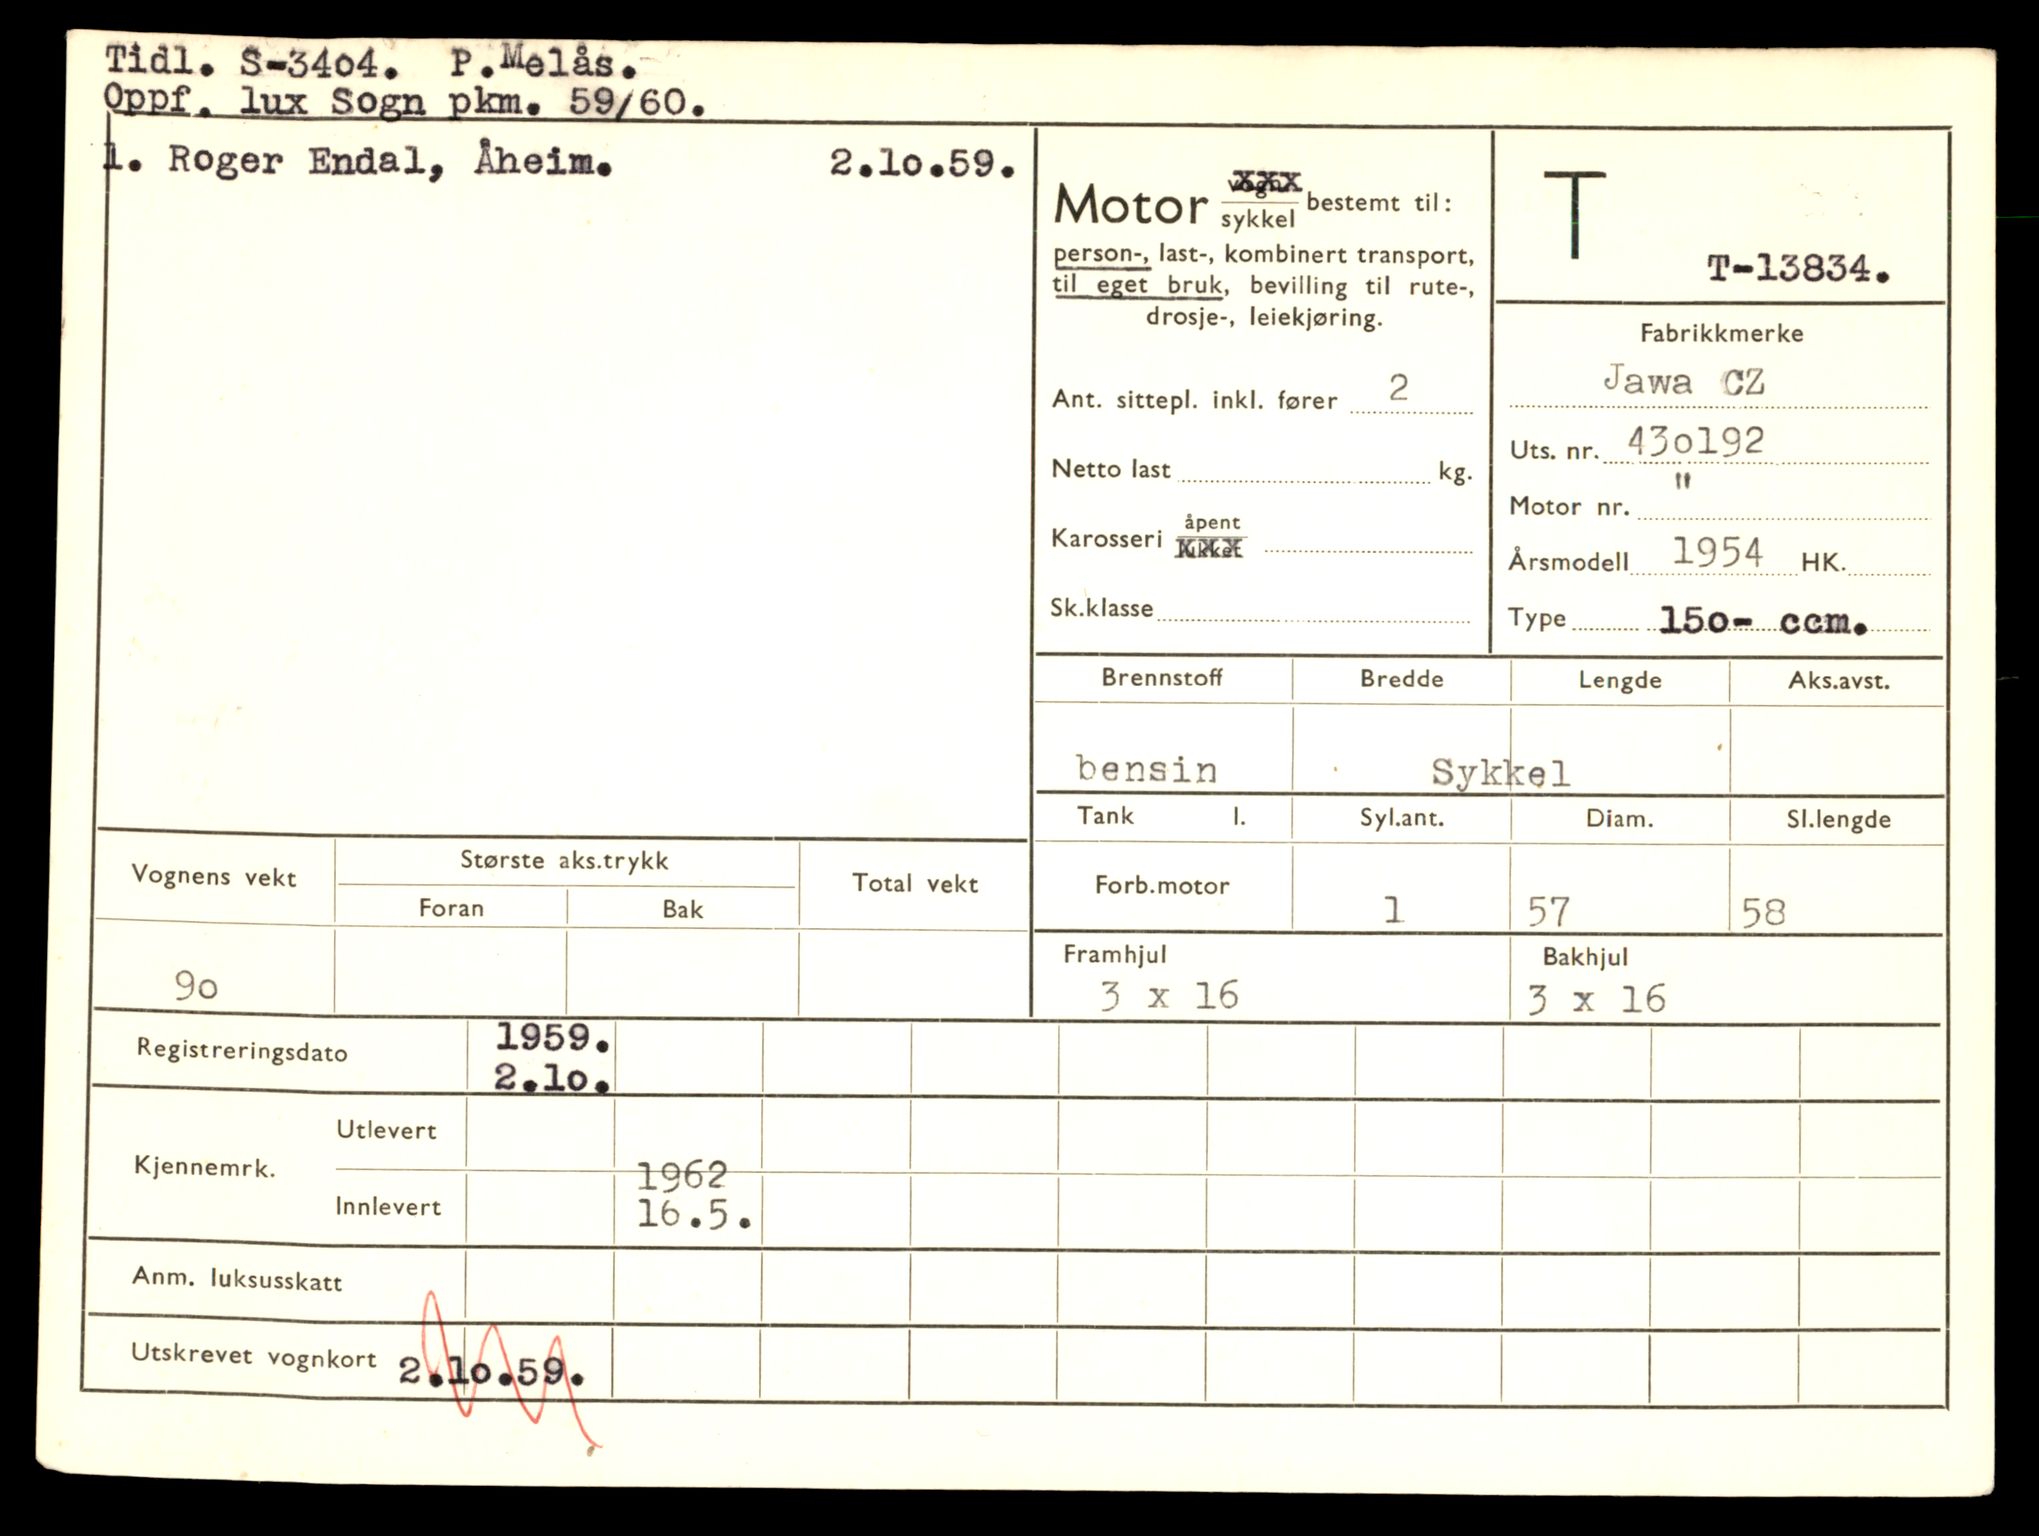 Tidl. S-34o4. P.Melås.
Oppf. lux Sogn pkm. 59/60.
1. Roger Endal, Åheim. 2.1o.59.
Motor vogn xxx / sykkel bestemt til:
person-, last-, kombinert transport,
til eget bruk, bevilling til rute-,
drosje-, leiekjøring.
Ant. sittepl. inkl. fører 2
Netto last kg.
Karosseri åpent / lukket xxx
Sk.klasse
T
T-13834.
Fabrikkmerke
Jawa CZ
Uts. nr. 43o192
Motor nr. "
Årsmodell 1954 HK.
Type 15o- ccm.
Brennstoff Bredde Lengde Aks.avst.
bensin Sykkel
Tank l. Syl.ant. Diam. Sl.lengde
Forb.motor 1 57 58
Framhjul Bakhjul
3 x 16 3 x 16
Vognens vekt Største aks.trykk Total vekt
Foran Bak
9o
Registreringsdato 1959.
2.1o.
Kjennemrk. Utlevert
Innlevert 1962
16.5.
Anm. luksusskatt
Utskrevet vognkort 2.1o.59.